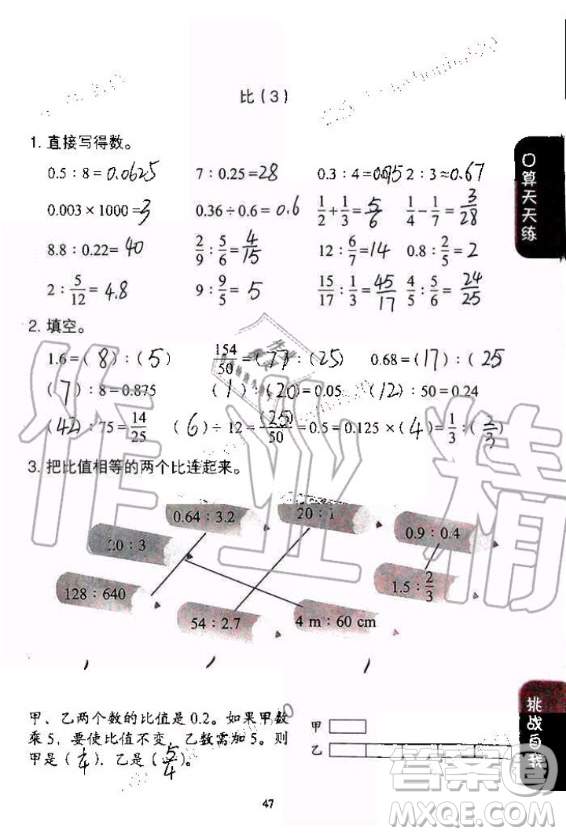 比(3)
1. 直接写得数。
0.5：8=0.0625  7：0.25=28  0.3：4=0.095  2：3=0.67
0.003×1000=3  0.36÷0.6=0.6  1/2+1/3=5/6  1/4-1/7=3/28
8.8：0.22=40  2/9：5/6=4/15  12：6/7=14  0.8：2/5=2
2：5/12=4.8  9：9/5=5  15/17：1/3=45/17  4/5：5/6=24/25
2. 填空。
1.6=(8)：(5)  154/50=(77)：(25)  0.68=(17)：(25)
(7)：8=0.875  (1)：(20)=0.05  (12)：50=0.24
(42)：75=14/25  (6)÷12=(25)/50=0.5=0.125×(4)=1/3：(2/3)
3. 把比值相等的两个比连起来。
0.64：3.2  20：1
20：3  0.9：0.4
128：640  1.5：2/3
54：2.7  4 m：60 cm
甲、乙两个数的比值是0.2。如果甲数
乘5，要使比值不变，乙数需加5。则
甲是(1/4)，乙是(5/4)。
甲
乙
47
口算天天练
挑战自我
作业精
答案圈
MXQE.COM